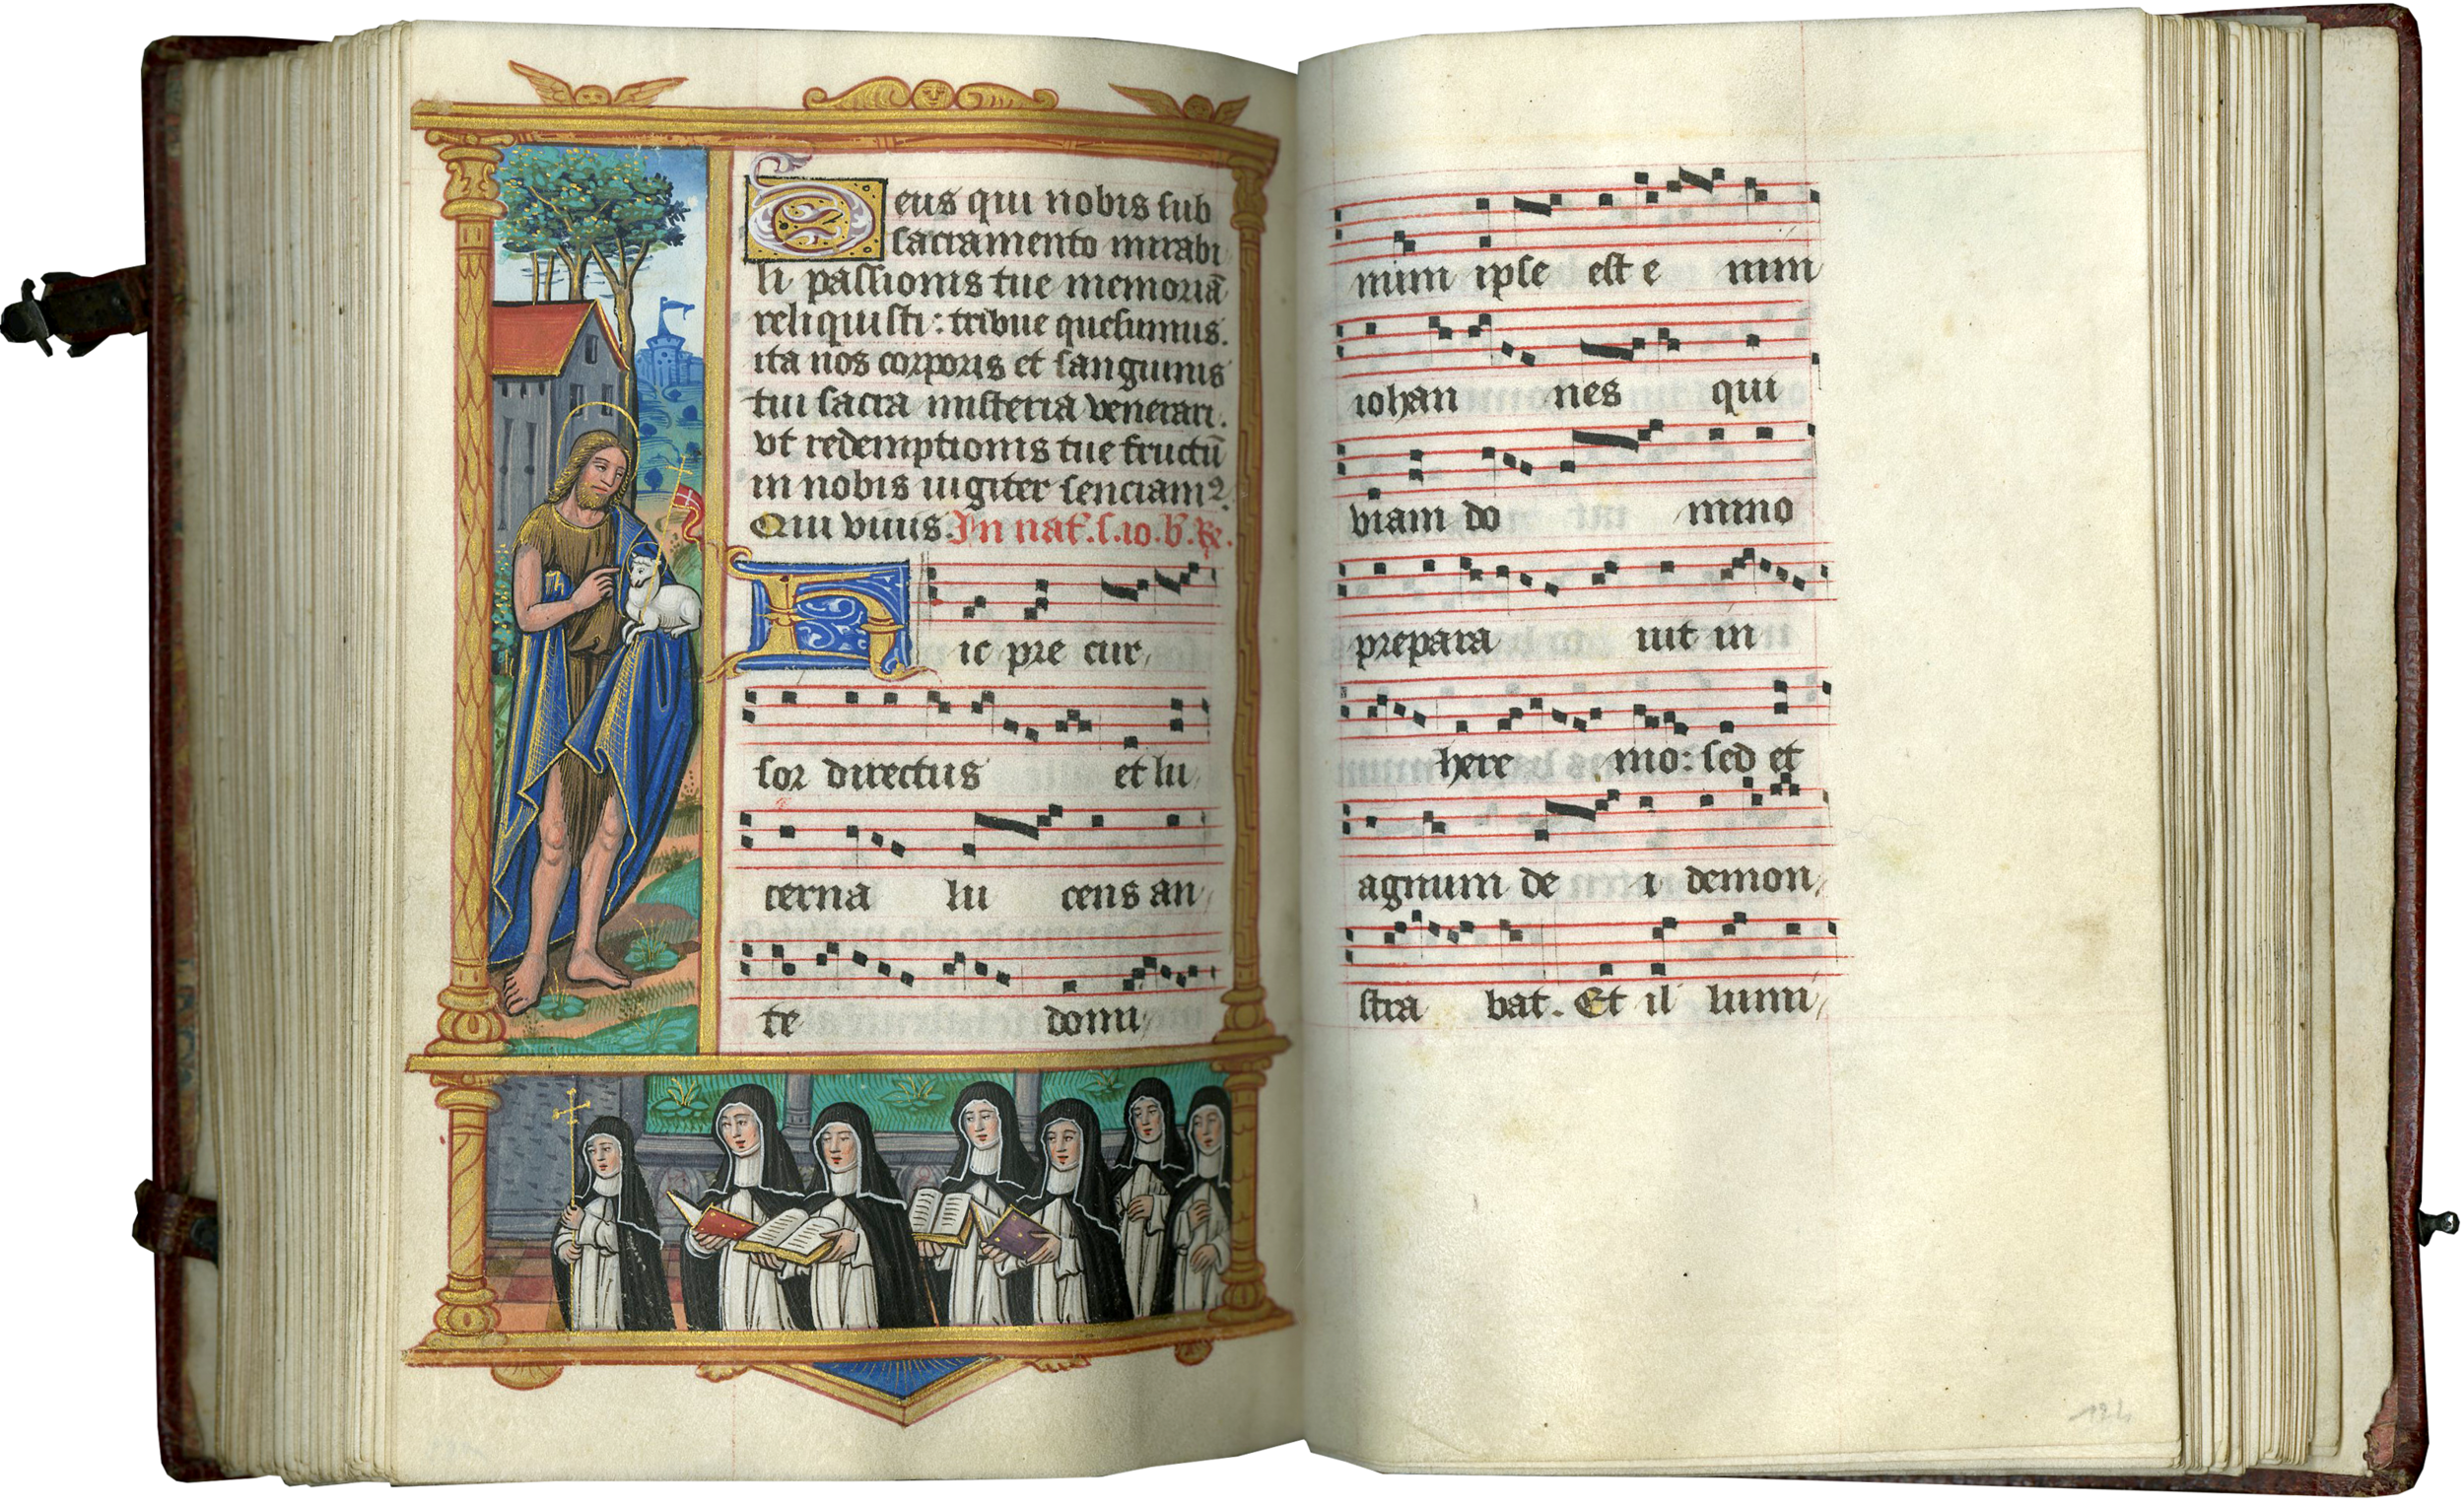 Deus qui nobis sub
sacramento mirabi
li passionis tue memoriā
reliquisti: tribue quesumus.
ita nos corporis et sanguinis
tui sacra misteria venerari.
vt redemptionis tue fructū
in nobis iugiter senciamꝰ.
Qui viuis. In nat. s. io. b. ℟.
Hic pre cur,
sor directus et lu,
cerna lu cens an,
te domi,
num ipse est e nim
iohan nes qui
viam do mino
prepara uit in
here mo: sed et
agnum de i demon,
stra bat. Et il lumi,